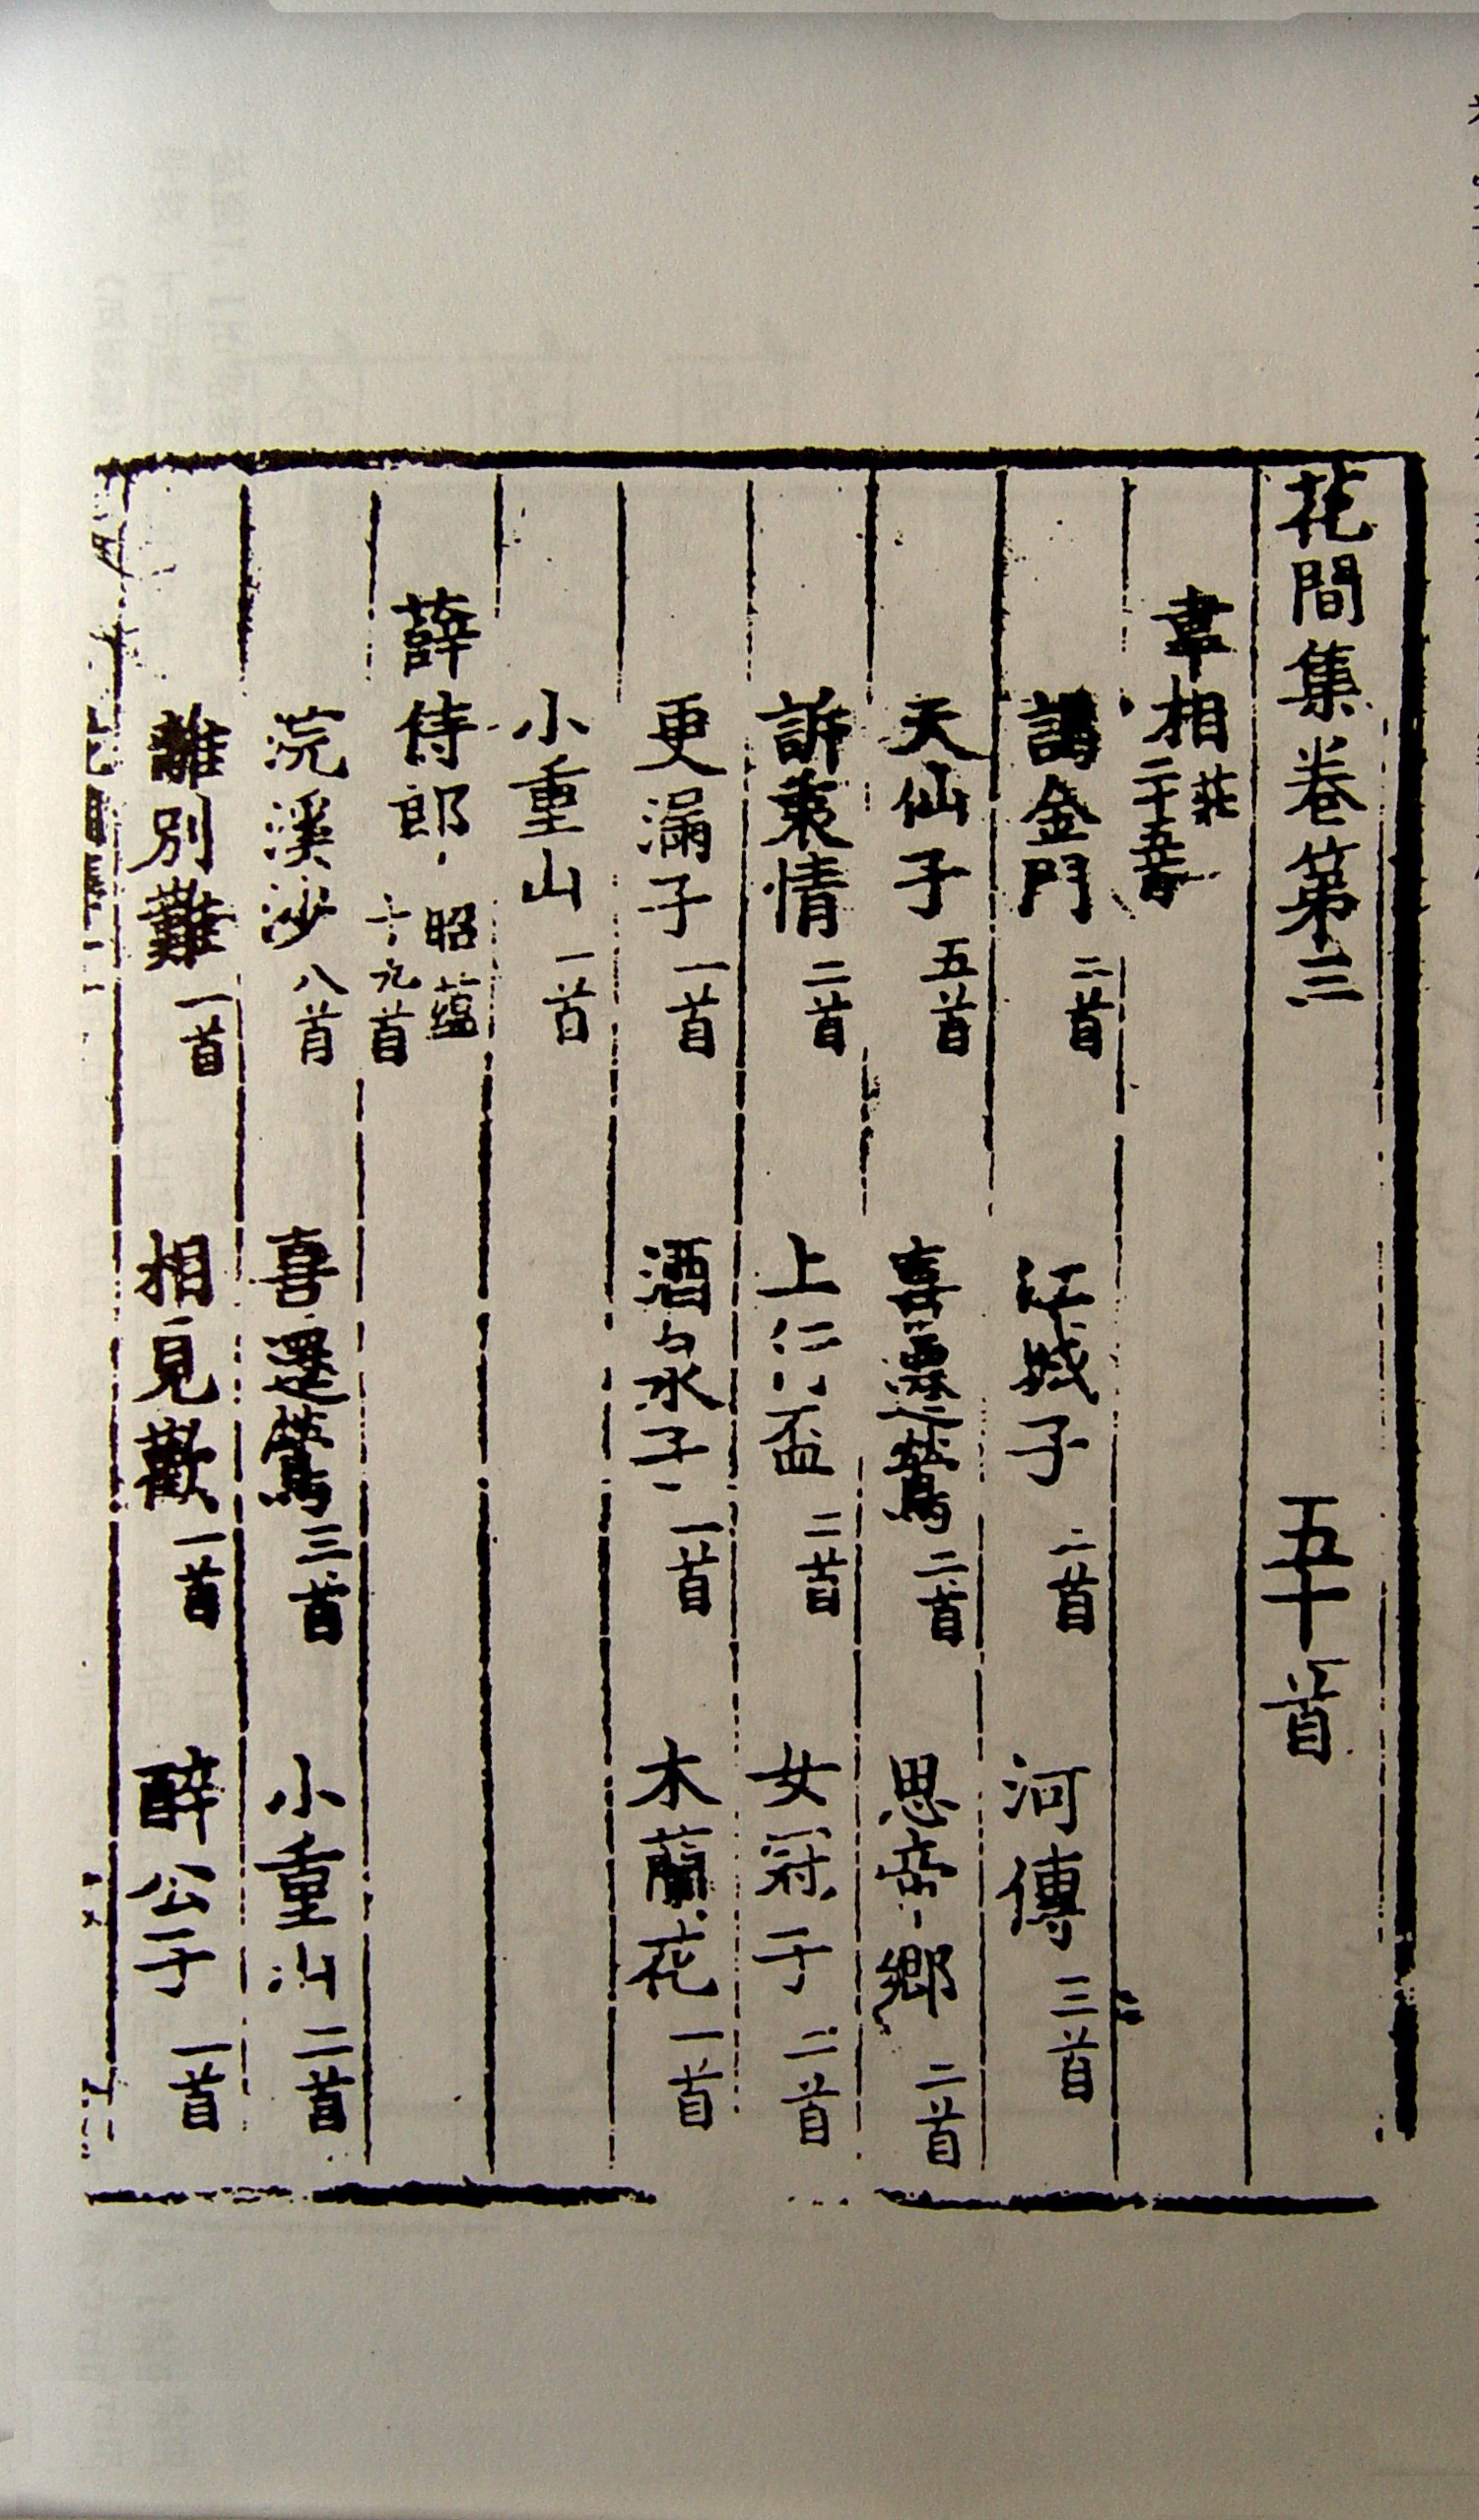 花間集卷第三 五十首
韋相莊二十五首
謁金門二首 江城子二首 河傳三首
天仙子五首 喜遷鶯二首 思帝鄉二首
訴衷情二首 上行盃二首 女冠子二首
更漏子一首 酒泉子一首 木蘭花一首
小重山一首
薛侍郎昭蘊十九首
浣溪沙八首 喜遷鶯三首 小重山二首
離別難一首 相見歡一首 醉公子一首